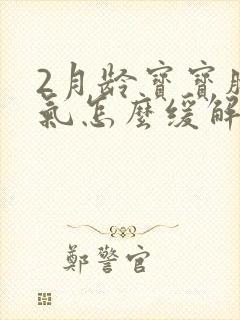 2月龄寶寶腸
氣怎麼緩解
鄭警官